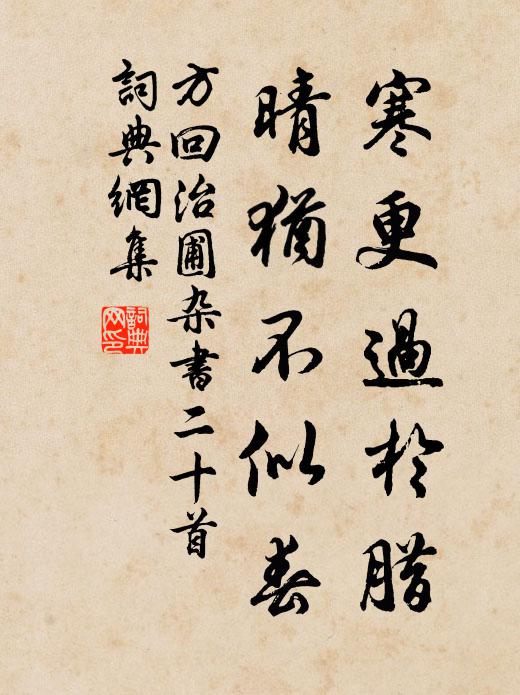 寒更過於腊
晴猶不似春
方回治圃杂書二十首
詞典網集
詞典
网印